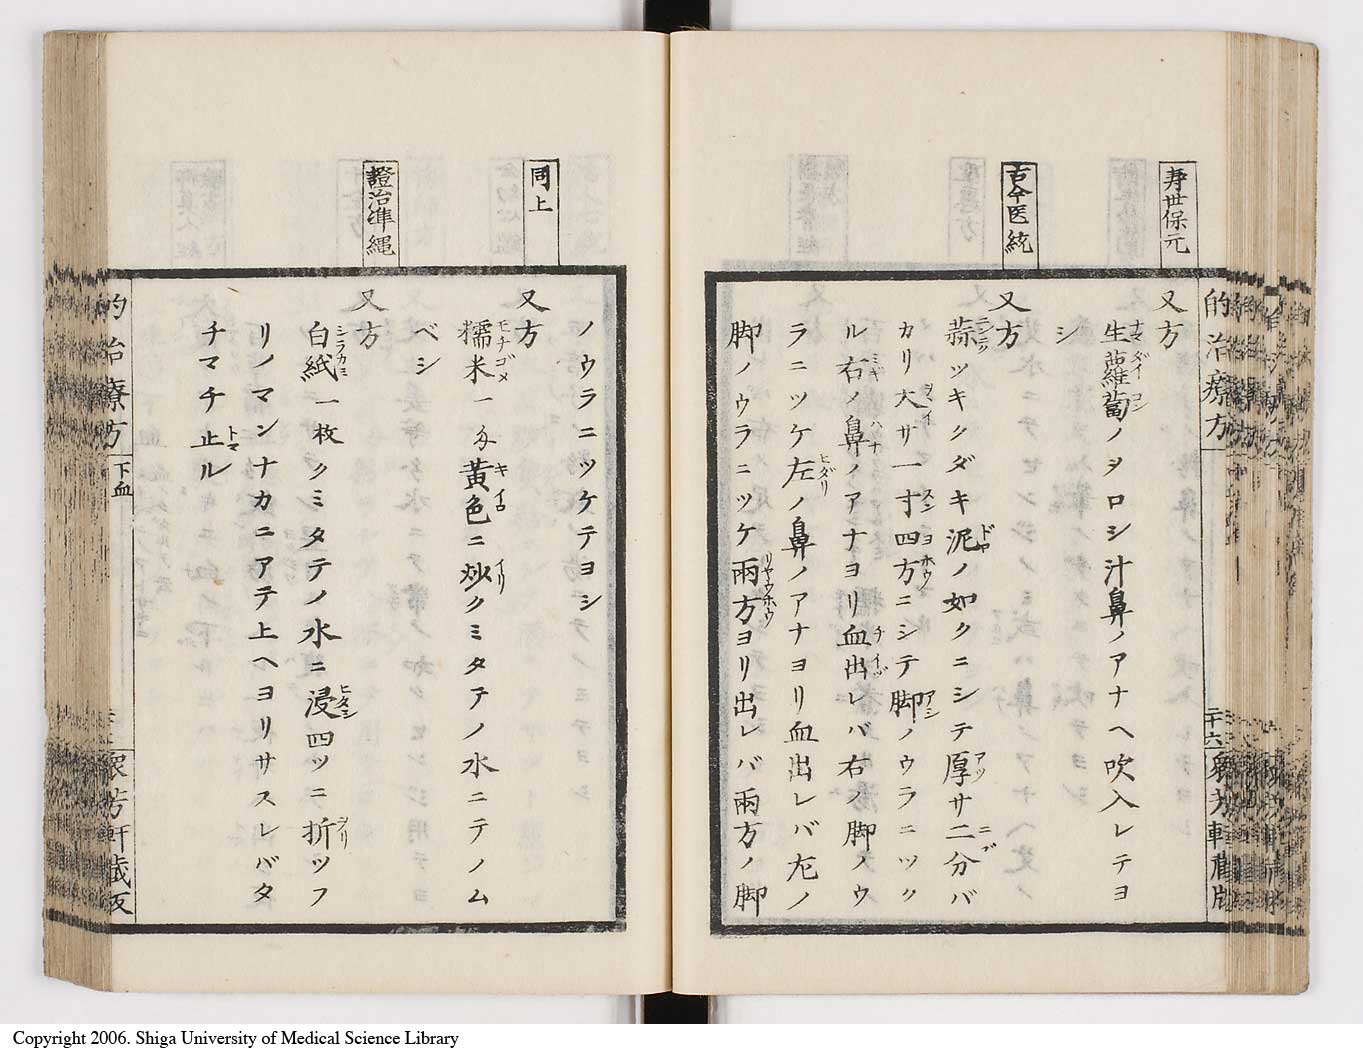 壽世保元
古今医統
的治療方
又方
生蘿蔔ノヲロシ汁鼻ノアナヘ吹入レテヨ
シ
又方
蒜ツキクダキ泥ノ如クニシテ厚サ二分バ
カリ大サ一寸四方ニシテ脚ノウラニツク
ル右ノ鼻ノアナヨリ血出レバ右ノ脚ノウ
ラニツケ左ノ鼻ノアナヨリ血出レバ左ノ
脚ノウラニツケ兩方ヨリ出レバ兩方ノ脚
二十六
同上
證治準繩
ノウラニツケテヨシ
又方
糯米一匁黃色ニ炒クミタテノ水ニテノム
ベシ
又方
白紙一枚クミタテノ水ニ浸四ツニ折ツフ
リノマンナカニアテ上ヘヨリサスレバタ
チマチ止ル
的治療方
下血
衆芳軒藏板
Copyright 2006. Shiga University of Medical Science Library